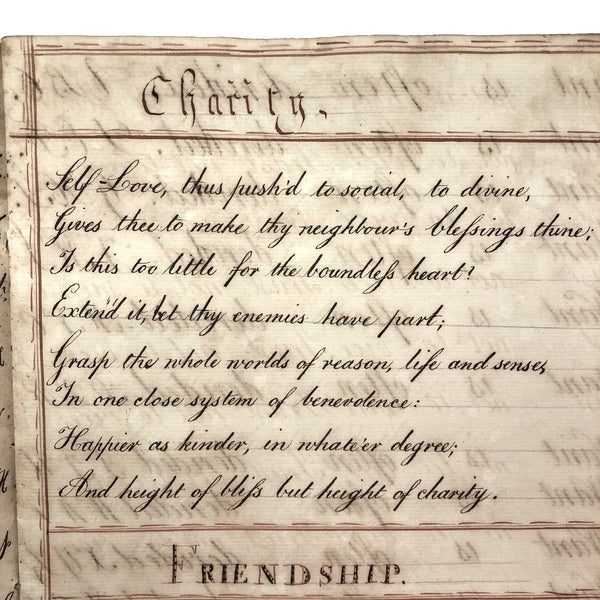 Charity.
Self-Love, thus push'd to social, to divine,
Gives thee to make thy neighbour's blessings thine:
Is this too little for the boundless heart?
Extend it, let thy enemies have part;
Grasp the whole worlds of reason, life and sense,
In one close system of benevolence:
Happier as kinder, in whate'er degree;
And height of bliss but height of charity.
FRIENDSHIP.